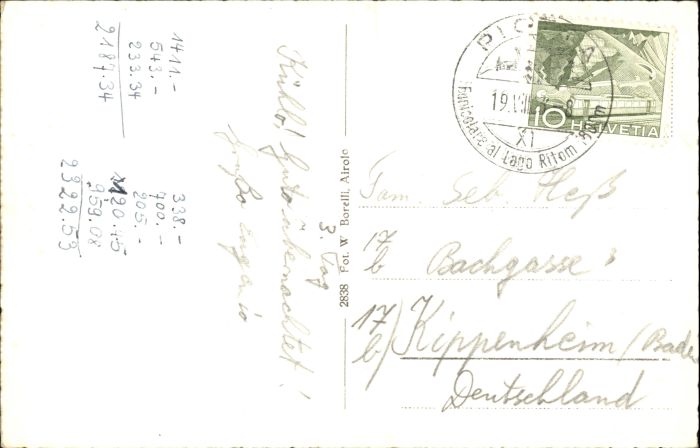 1411.-
543.-
233.34
2187.34
338.-
700.-
205.-
1120.45
959.08
2322.53
Kühle! Gut
übernachtet!
3. Tag
2838 Fot. W Borelli, Airolo
PIOTTA
19.VIII
XI
Funicolare al Lago Ritom 1800m
10 HELVETIA
Fam. Seb. Heß
17
b Bachgasse
17
b) Kippenheim / Baden
Deutschland